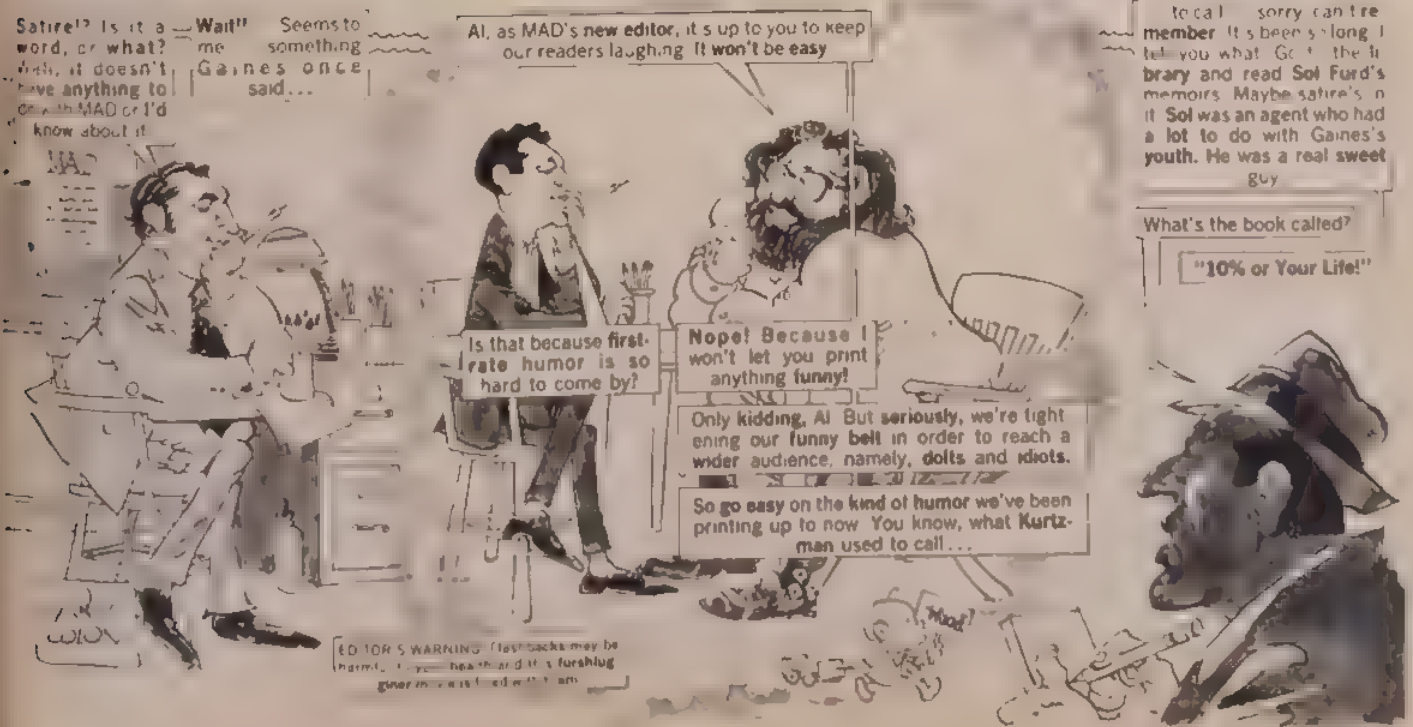 Satire!? Is it a
word, or what?
it doesn't
have anything to
do with MAD or I'd
know about it
Wait!! Seems to
me something
Gaines once
said...
MAD
Al, as MAD's new editor, it s up to you to keep
our readers laughing It won't be easy
Is that because first-
rate humor is so
hard to come by?
Nope! Because I
won't let you print
anything funny!
Only kidding, Al But seriously, we're tight
ening our funny belt in order to reach a
wider audience, namely, dolts and idiots.
So go easy on the kind of humor we've been
printing up to now You know, what Kurtz-
man used to call...
to call sorry can t re
member It s been so long I
tell you what Go t the li
brary and read Sol Furd's
memoirs Maybe satire's n
it Sol was an agent who had
a lot to do with Gaines's
youth. He was a real sweet
guy
What's the book called?
"10% or Your Life!"
EDITOR S WARNING Flashbacks may be
harmful to your health and it s furshlug
giner
Woof?